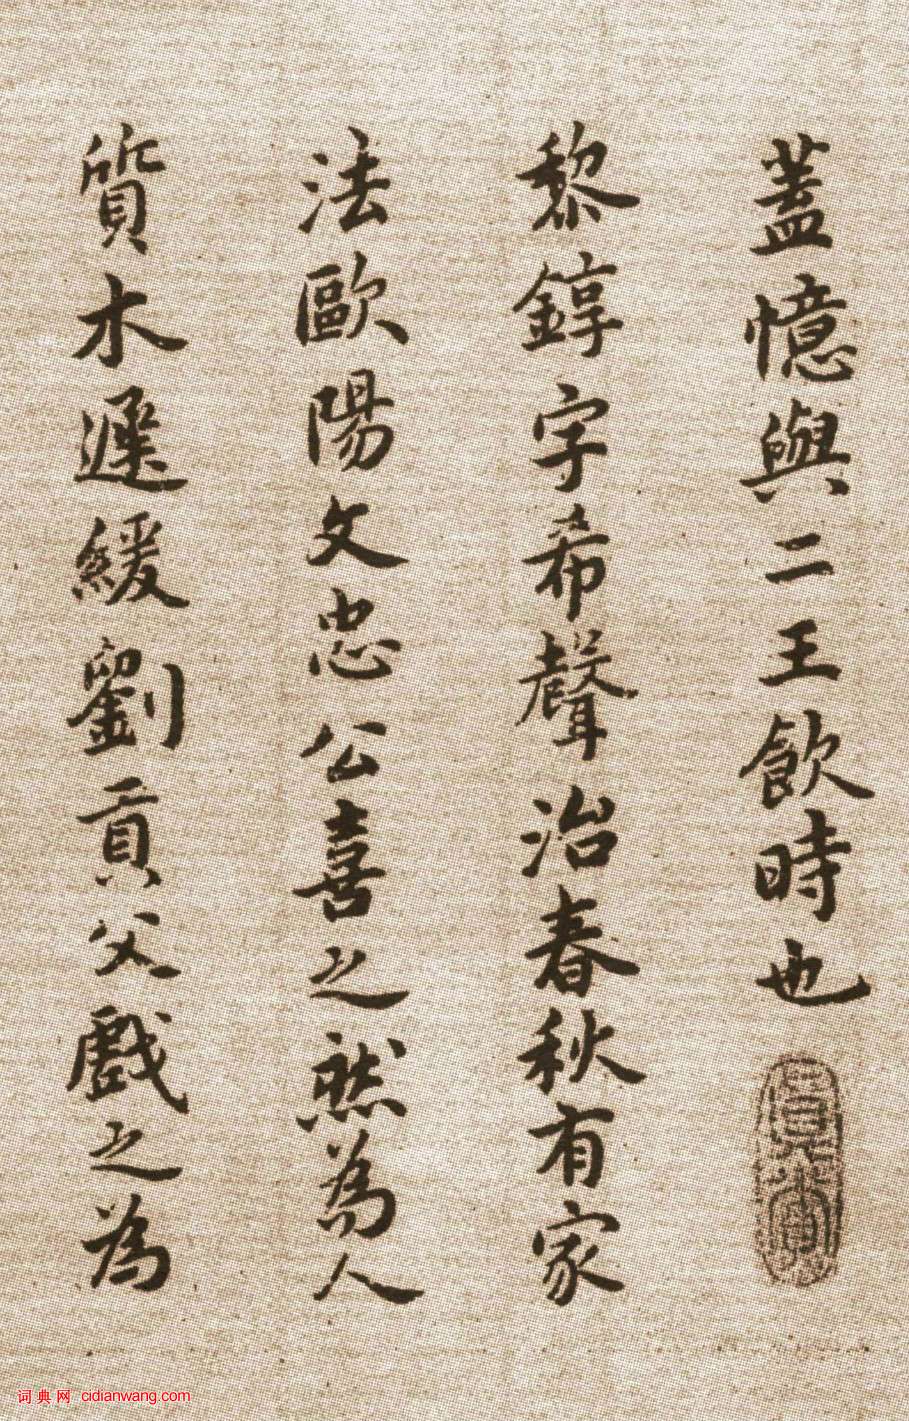 蓋憶與二王飲時也
真賞
黎錞字希聲治春秋有家
法歐陽文忠公喜之然為人
質木遲緩劉貢父戲之為
词典网 cidianwang.com